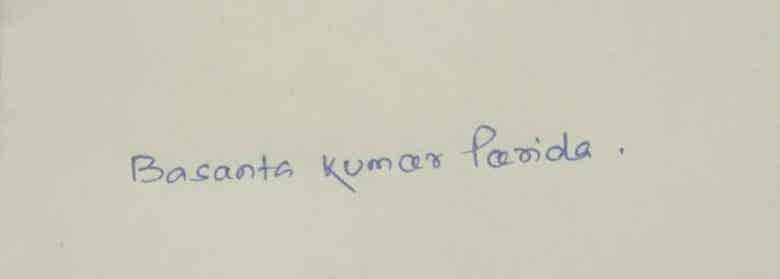 Basanta Kumar Parida.